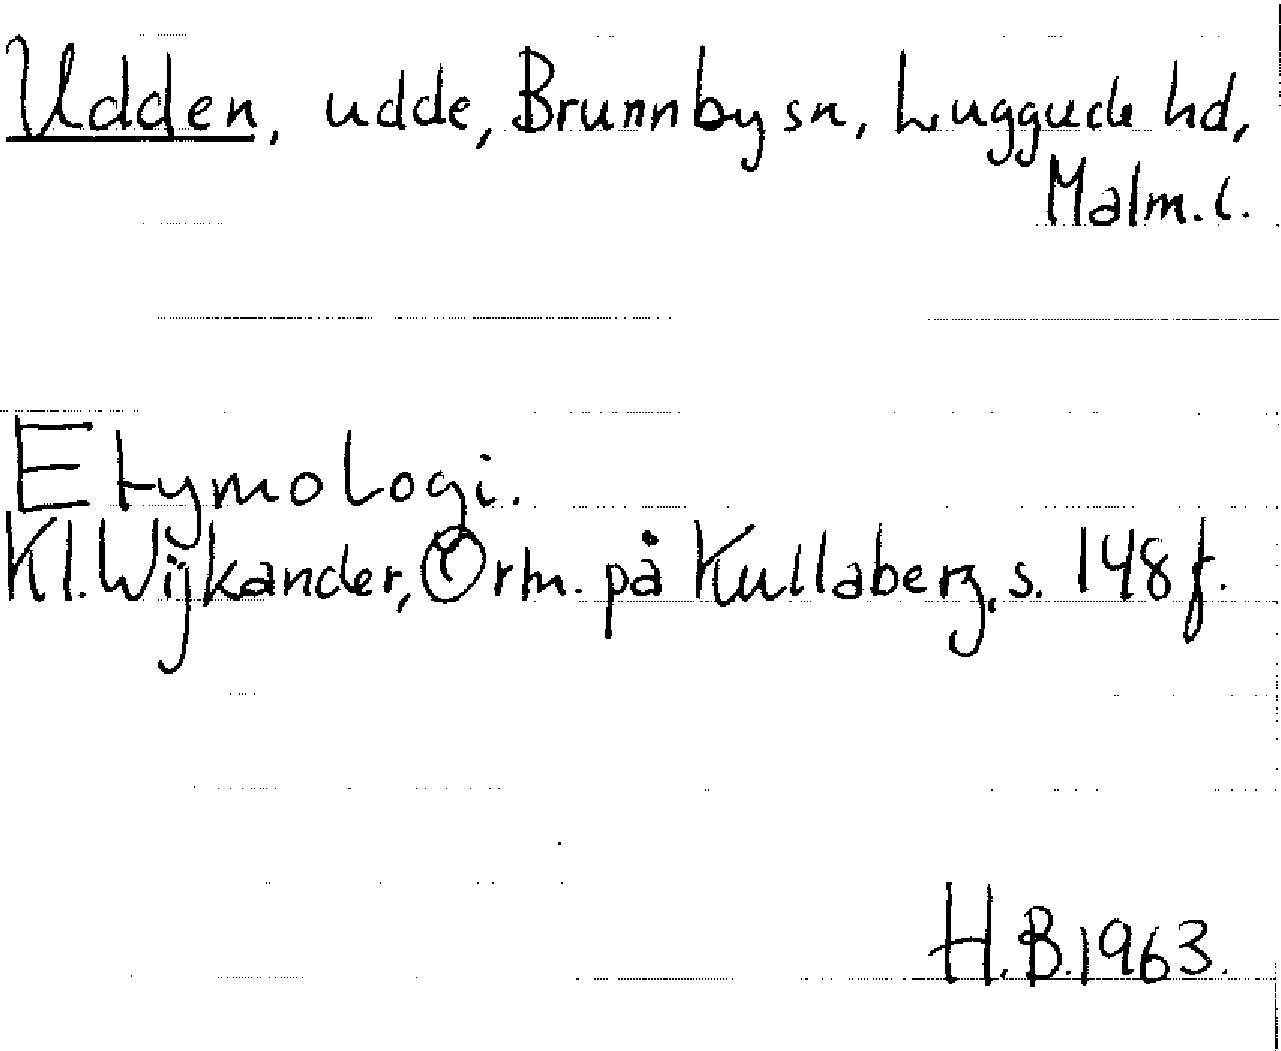 Udden, udde, Brunnby sn, Luggude hd,
Malm. l.
Etymologi.
Kl. Wijkander, Ortn. på Kullaberg, s. 148 f.
H. B. 1963.